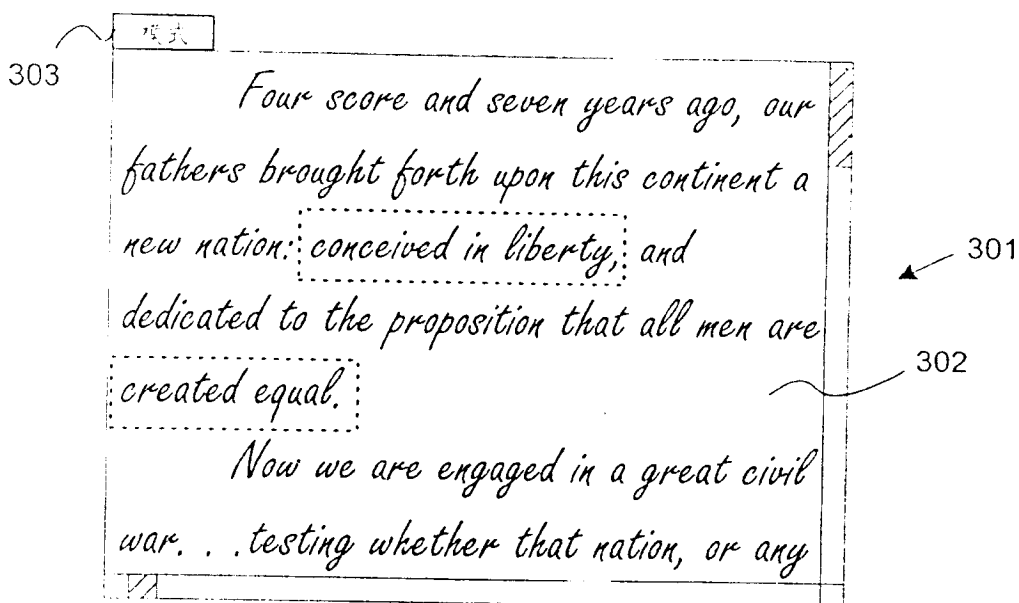 模式
303
Four score and seven years ago, our
fathers brought forth upon this continent a
new nation: conceived in liberty, and
301
dedicated to the proposition that all men are
302
created equal.
Now we are engaged in a great civil
war. . .testing whether that nation, or any